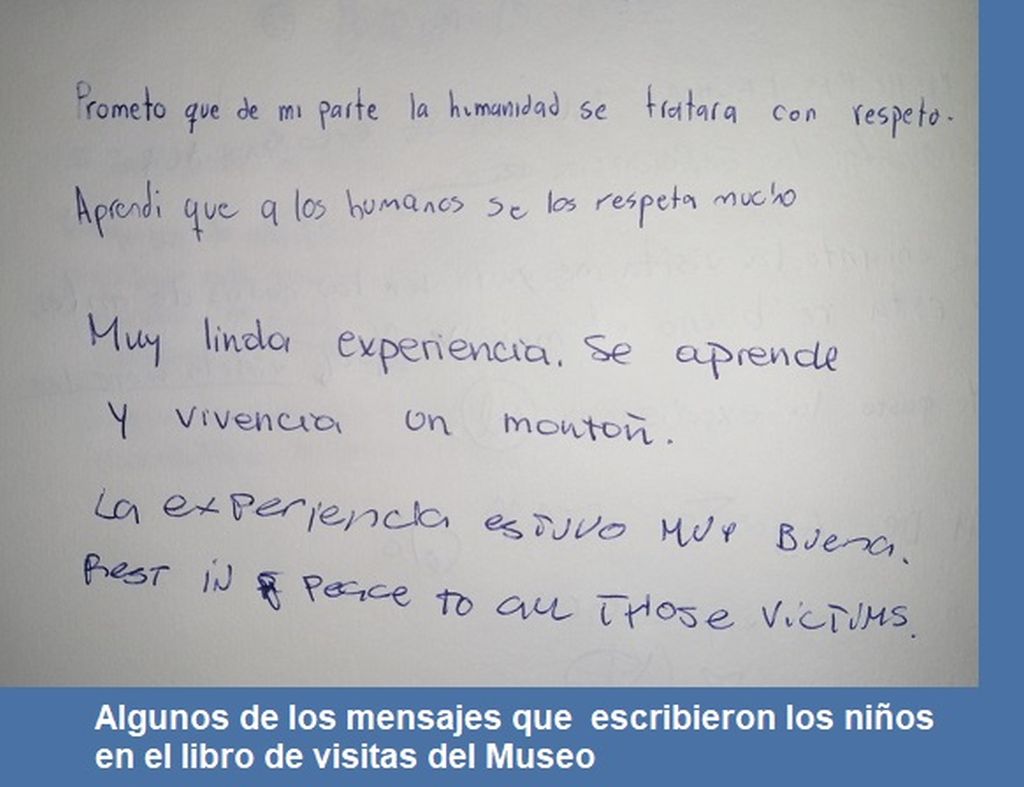 Prometo que de mi parte la humanidad se tratara con respeto.
Aprendi que a los humanos se los respeta mucho
Muy linda experiencia. Se aprende
y vivencia un montoñ.
La experiencia estuvo muy buena.
Rest in peace to all those victims.
Algunos de los mensajes que escribieron los niños
en el libro de visitas del Museo